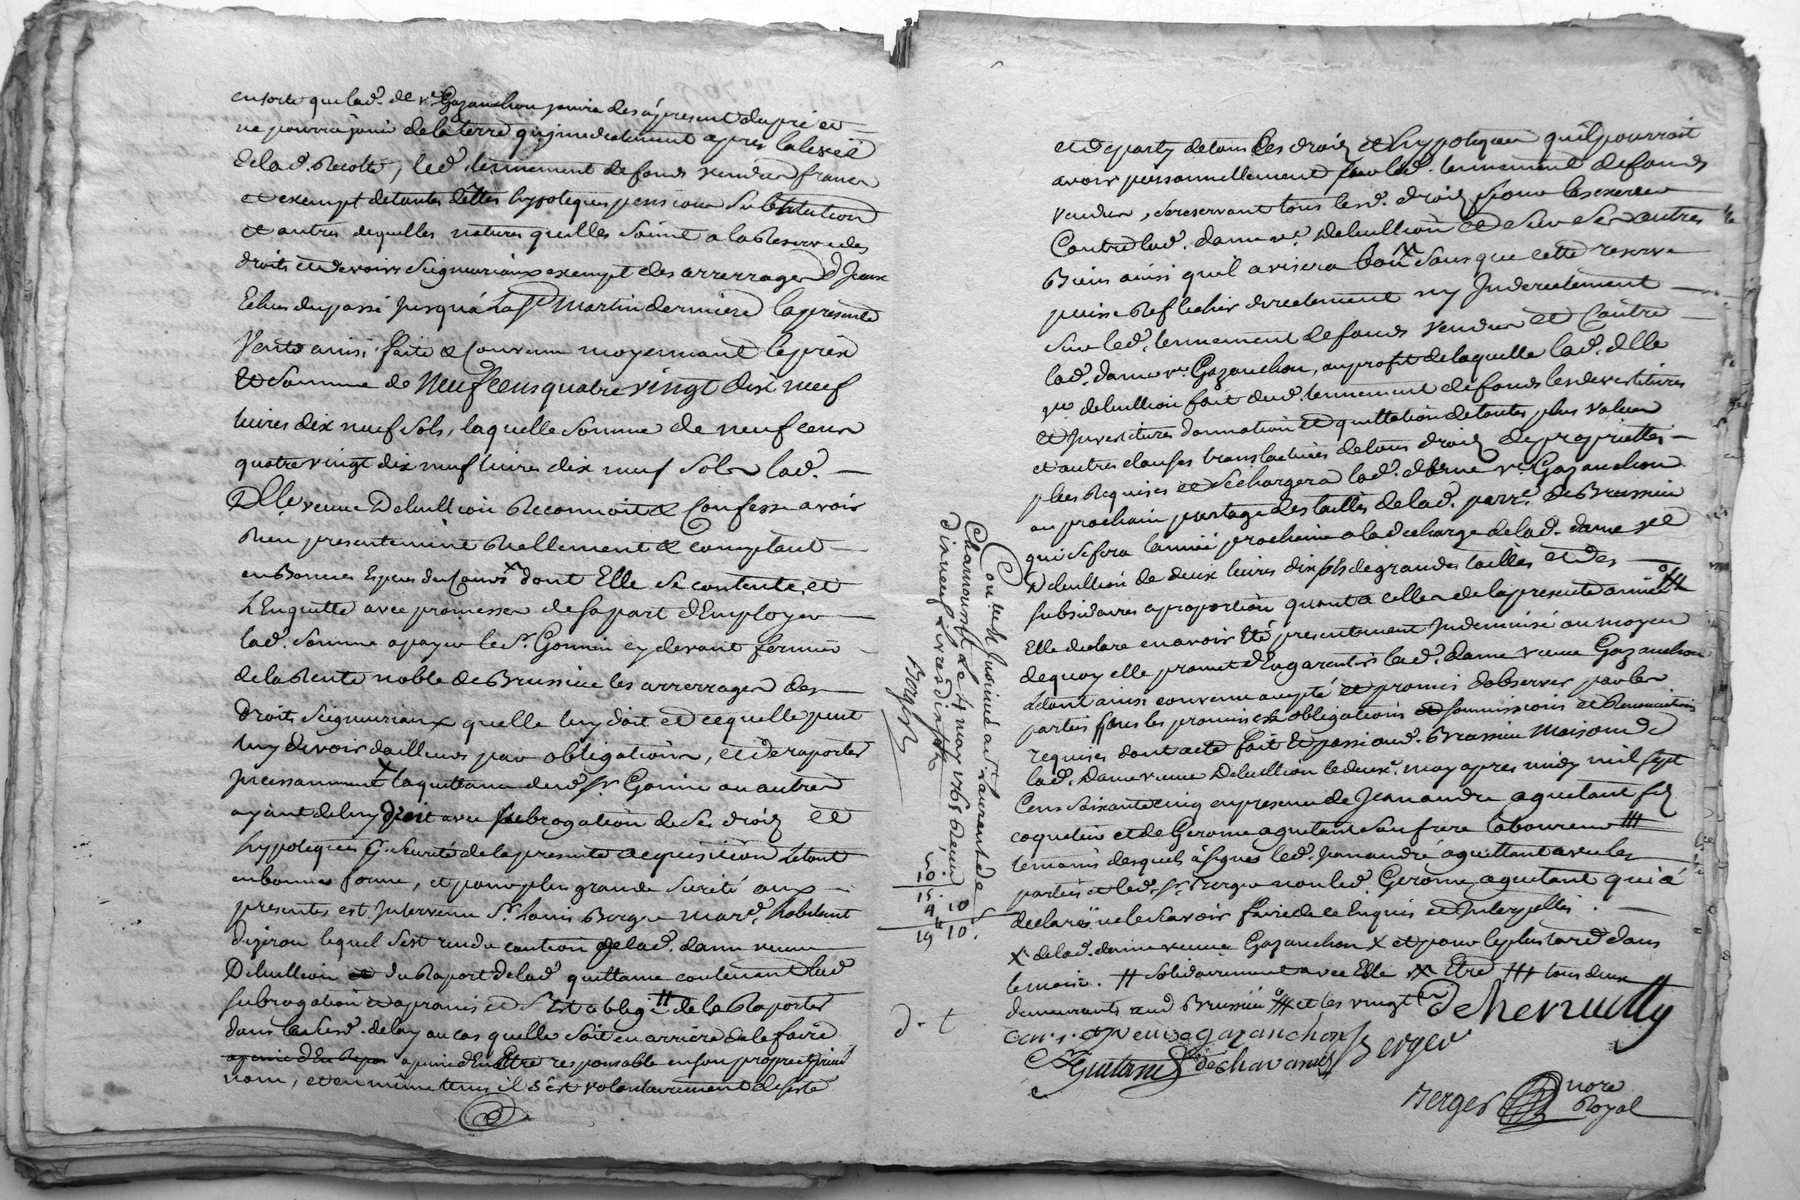 ensorte que lad. de. ve. Gazanchon jouira des àpresent du pré et
ne pourra jouir de la terre qu'jmmediatement apres la levée
de la d. Recolte, led. tennement de fonds vendu franc
et exempt de toutes dettes hypoteques pensions Substitution
et autres dequelles natures quelles soint a la Reserve des
droits et devoirs Seigneuriaux exempt des arrerrages d'Jceux
Echus du passé jusquà la St Martin derniere la presente
Vente ainsi faite & Convenue moyennant le prix
et Somme de Neuf cens quatre vingt dix neuf
livres dix neuf sols, laquelle somme de neuf cens
quatre vingt dix neuf livres dix neuf sols lad.
Dlle veuve Debullion Reconnoit & Confesse avoir
Reçu presentement Reellement & comptant
en Bonnes Especes du Cours dont Elle se contente et
l'Enquitte avec promesse de sa part d'Employer
lad. somme a payer le Sr. Gonnin cy devant fermier
de la Rente noble de Brussieu les arrerrages des
droits Seigneuriaux quelle luy doit et ce quelle peut
luy devoir dailleurs par obligations, et de raporter
jncessamment X la quittance dud. Sr Gonin ou autres
ayant de luy droit avec subrogation de ses droits et
hypoteques pr. Seureté de la presente acquisition Letout
en bonne forme, et pour plus grande Sureté aux
presentes est Jntervenu Sr. Louis Berger mard. habitant
Dizeron lequel s'est rendu caution de lad. dame veuve
Debullion du Raport de lad. quittance contenant lad.
subrogation et a promis et s'Est obligé # de la Raporter
dans au cas quelle soit en arriere de le faire
a peine d'En Etre responsable en son propre et privé
nom, et en même tems il s'est volontairement desisté
et departy de tous les droits et hypoteques qu'il pourroit
avoir personnellement sur led. tennement de fonds
vendu, se reservant tous lesd. droits pour les exercer
Contre lad. dame ve. Debullion et sur ses autres
Biens ainsi qu'il avisera bon sans que cette reserve
puisse Reflechir directement ny Jndirectement
sur led. tennement de fonds vendu et Contre
lad. dame ve. Gazanchon, au profit de laquelle lad. dlle
ve. debullion fait dud. tennement de fonds les devestitures
et Jnvestitures donnation et quittation de toutes plus values
et autres clauses translatives de tous droits de proprietés
plus Requises et se chargera lad. dame ve. Gazanchon
au prochain partage des tailles de lad. parre. de Brussieu
qui se fera l'année prochaine a la decharge de lad. dame ve
Debullion de deux livres dix sols de grandes tailles et des
subsidaires a proportion quant a celles de la presente année
Elle declare en avoir Eté presentement Jndemnisé au moyen
dequoy elle promet d'En garentir lad. dame veuve Gazanchon
Letout ainsi convenu accepté et promis d'observer par les
parties sous les promesses obligations soumissions et Renonciations
requises dont acte fait et passé aud. Brussieu maison de
lad. Dame veuve Debullion le deuxe. may apres midy mil sept
Cens Soixante cinq en presence de Jeanandré aguetant fils
coquelin et de Gerome aguetant son frere laboureurs ///
temoins desquels a signé led. Jeanandré aguettant avec les
parties et led. Sr. Berger non led. Gerome aguetant qui a
declaré ne le savoir faire de ce Enquis et Jnterpellé
X de lad. dame veuve Gazanchon X et pour le plus tard dans
le mois. # solidairement avec Elle X Etre /// tous deux
demeurants aud. Brussieu et les vingt
Dehenuilly
veuve gazanchon Berger
JGuetant dechavanes
Berger nore
Royal
Contlé & Jnsinué a St. Laurent de
Chamousset le 4 may 1765 Reçu
dixneuf livres dix sols
Berger
10.
15. 10
4
19 10.
d. t